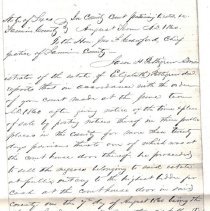 State of Texas In County Court pertaining to estates
Fannin County August Term A.D. 1860.
To the Hon. Chief
Justice of Fannin County
Jason H. Pettigrew Admin
istrator of the estate of Elizabeth Pettigrew decd
reports that in accordance with the order
of your court made at the June term
A.D. 1860 after giving notice of the time & place
of sale by posting notices thereof in three public
places in the County for more than twenty
days previous thereto one of which was at
the court house door thereof he proceeded
to sell the negroes belonging to said estate
at public outcry to the highest bidder for
cash at the court house door in said
county on the 7th day of August 1860 being the